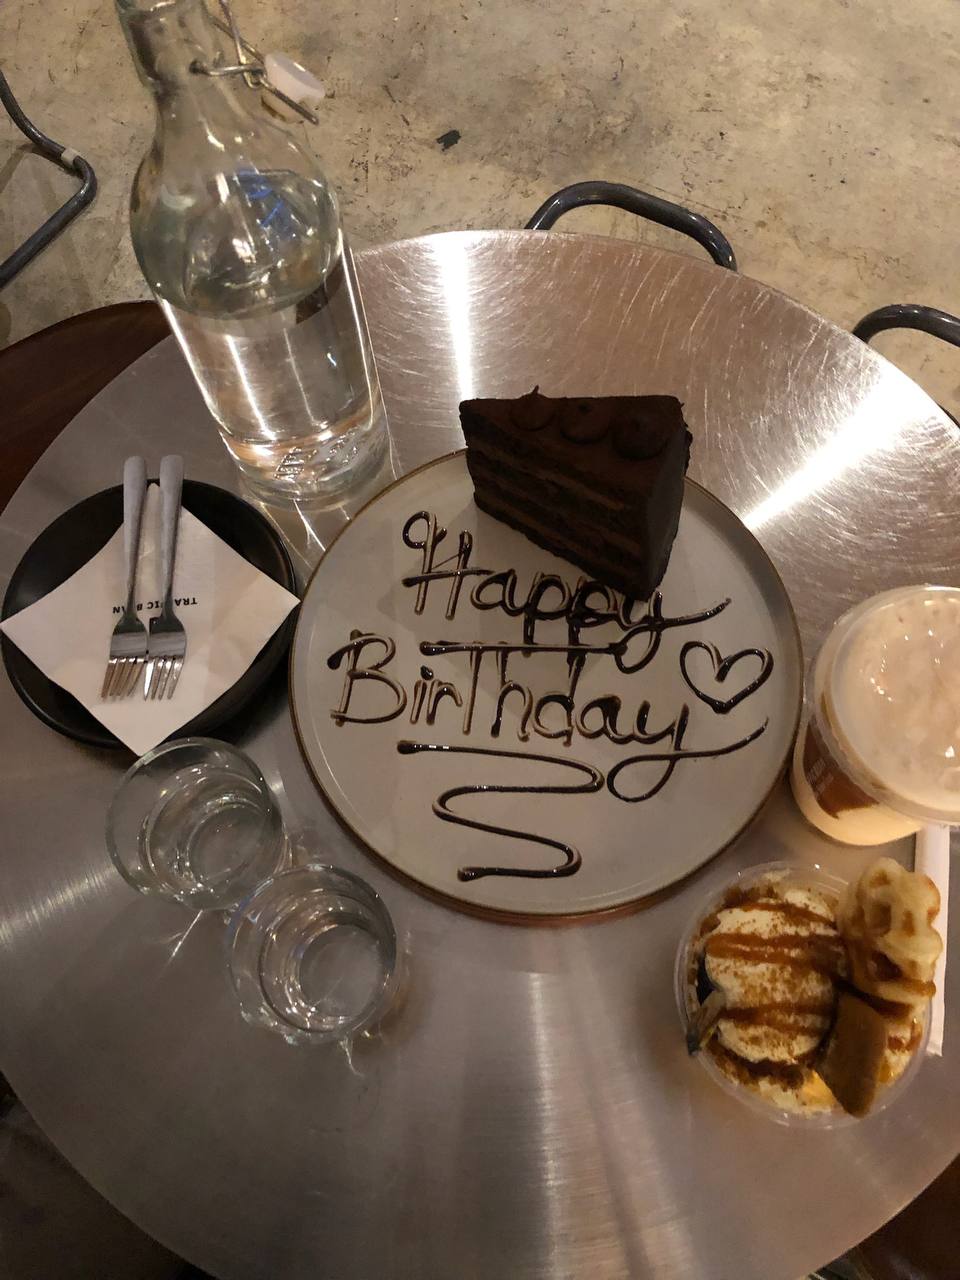 Happy
Birthday
TRAFFIC BEAN